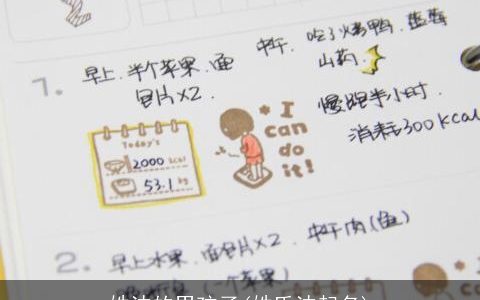 1. 早上.半个苹果.面包片X2.
中午. 吃了烤鸭. 蓝莓山药.
慢跑半小时.
消耗300kcal
Today's
2000 kcal
53.1 kg
I can do it!
2. 早上水果. 面包片X2. 中午肉(鱼)
(一个苹果)